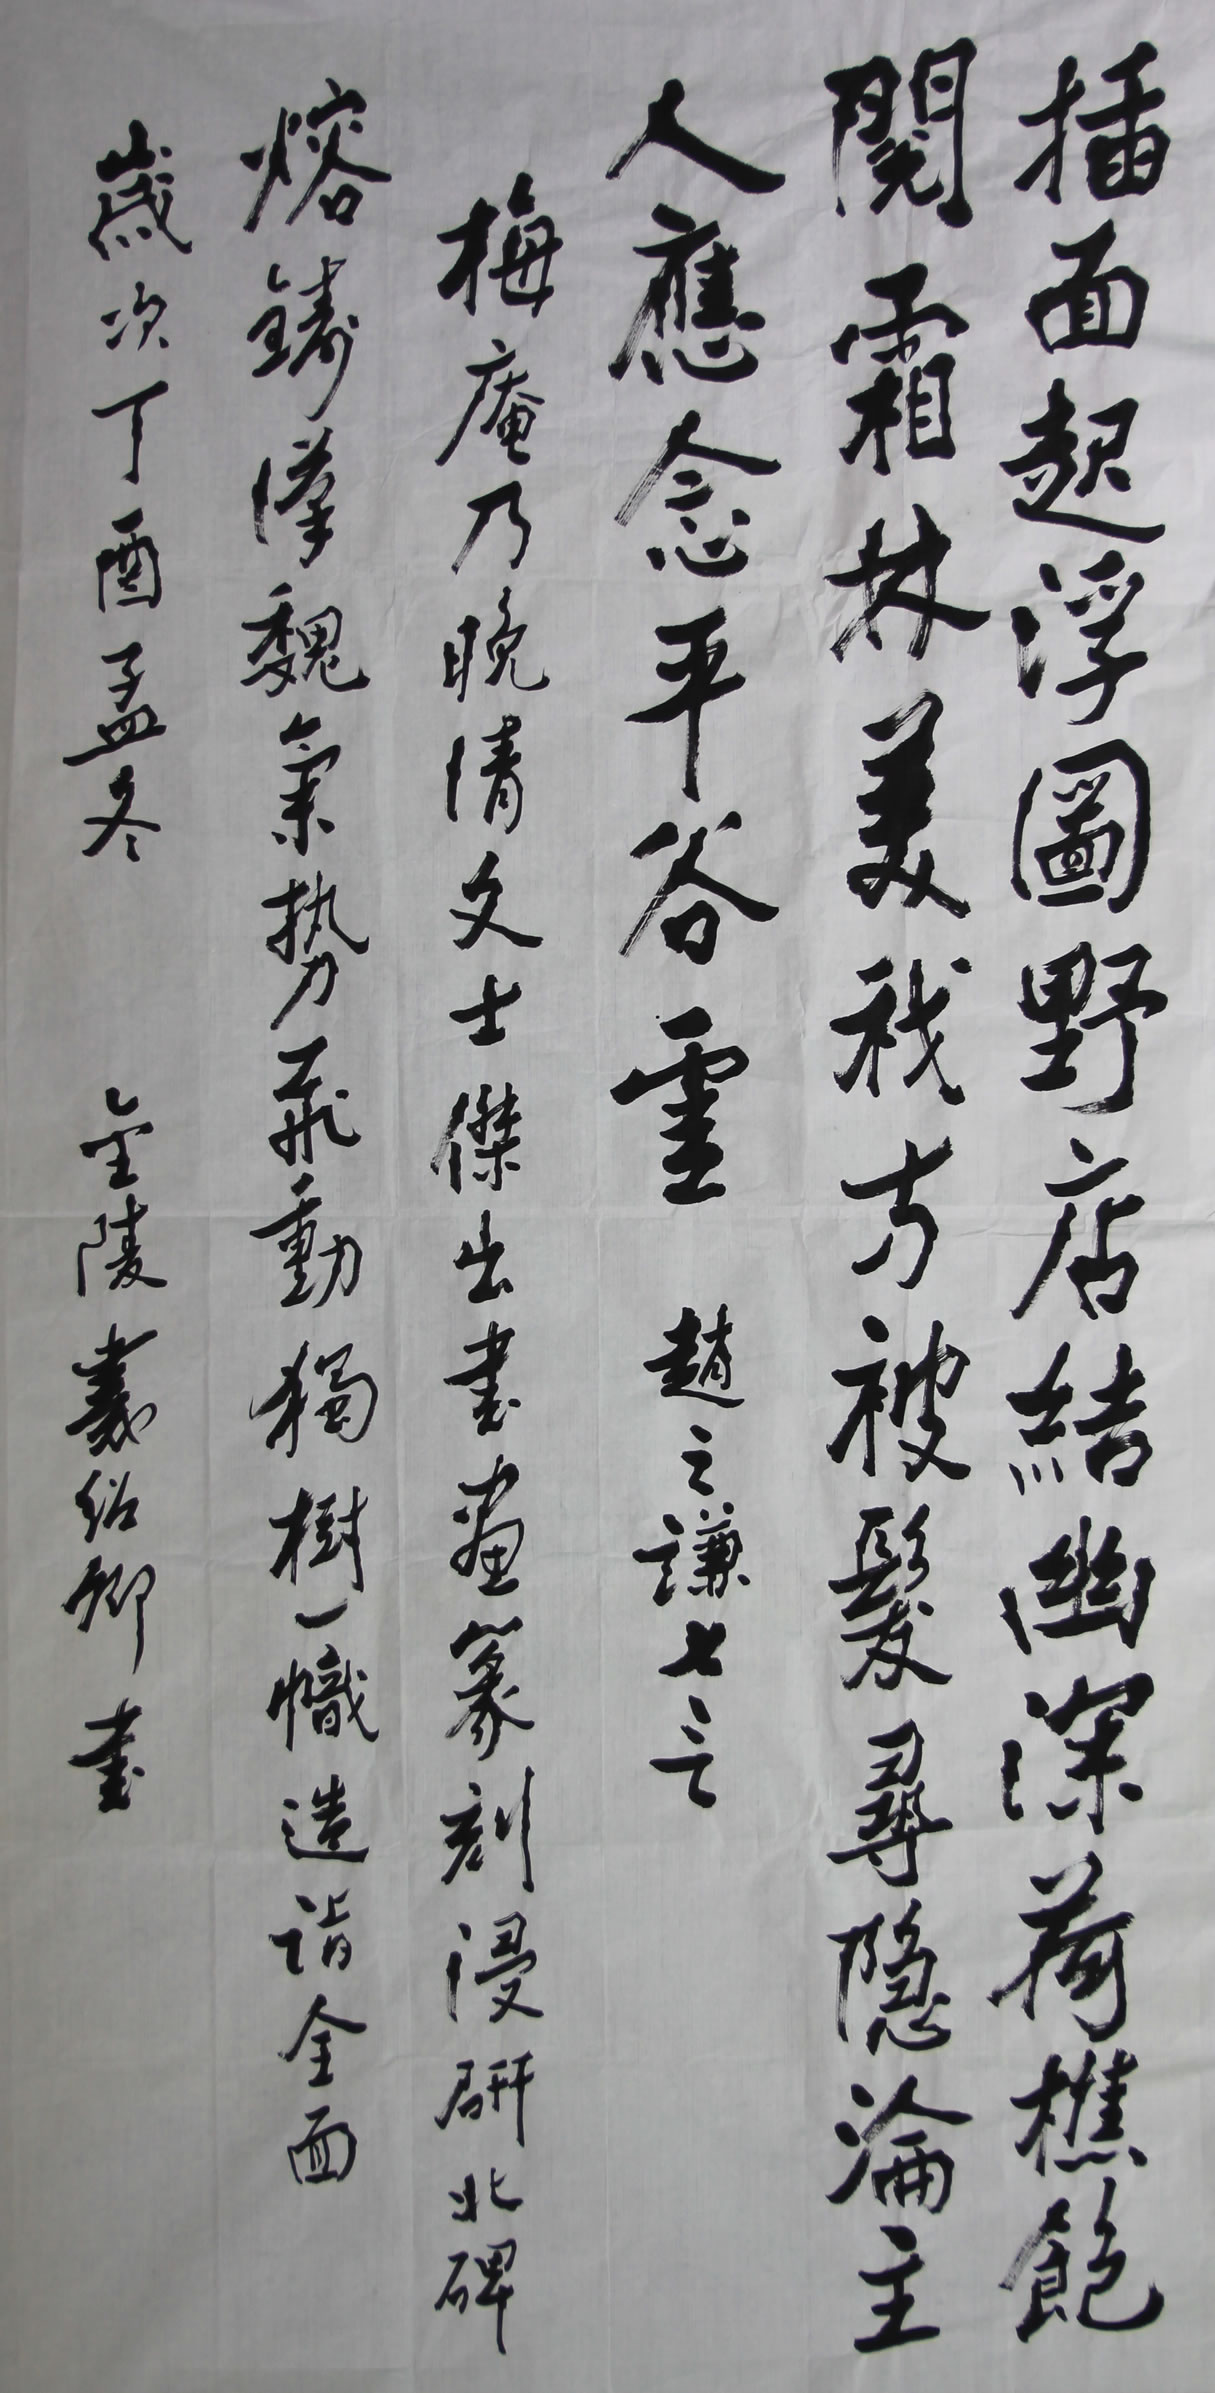 插面起浮圖野店結幽深荷樵飽
閱霜林美我方被髮尋隱淪主
人應念平谷靈 趙之謙七言
梅庵乃晚清文士傑出書畫篆刻浸研北碑
熔鑄漢魏氣勢飛動獨樹一幟造詣全面
歲次丁酉孟冬 金陵 紹卿書